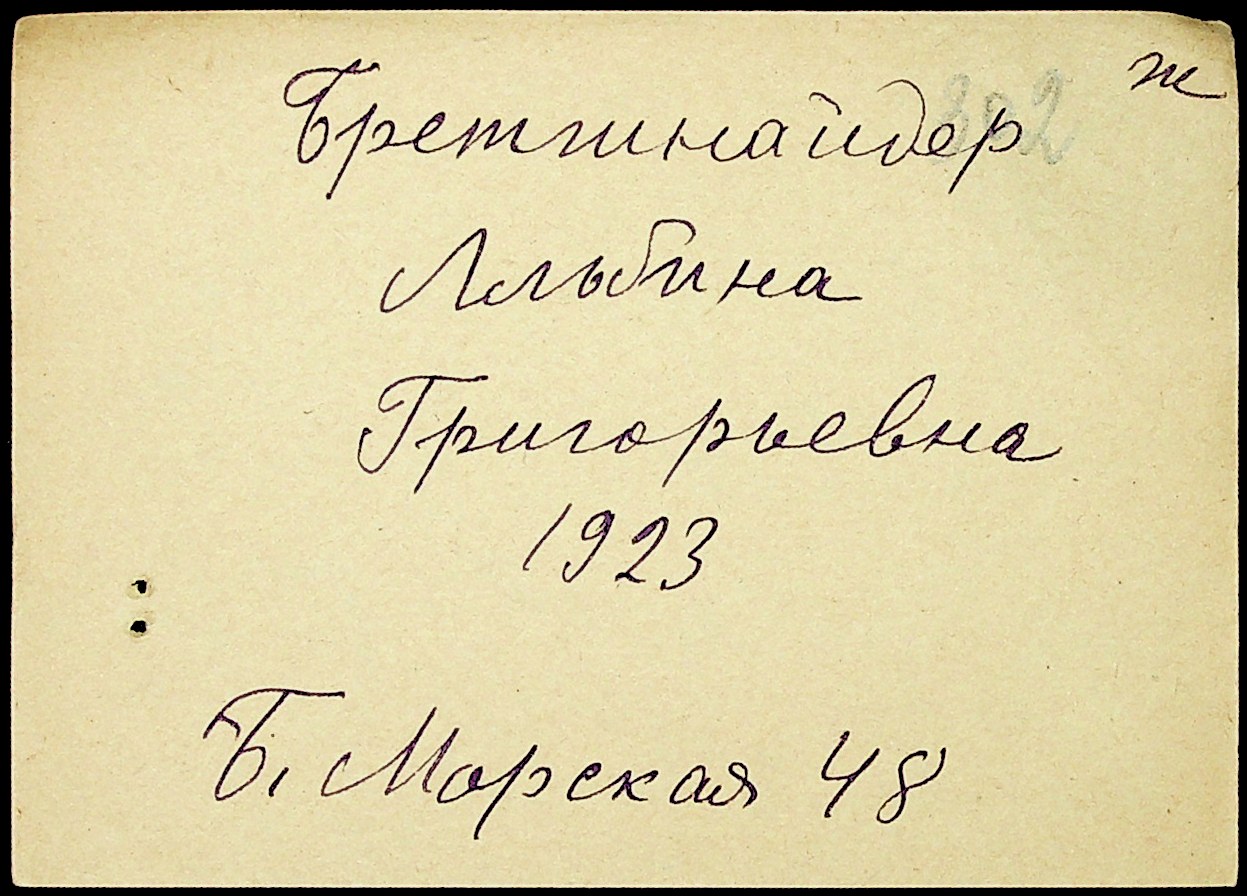 ж
Бретшнайдер
Альбина
Григорьевна
1923
Б. Морская 48